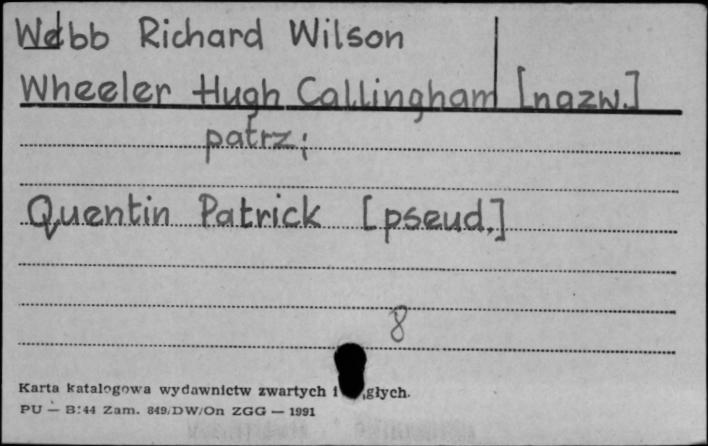 Webb Richard Wilson
Wheeler Hugh Callingham [nazw.]
patrz:
Quentin Patrick [pseud.]
8
Karta katalogowa wydawnictw zwartych i głych.
PU — B:44 Zam. 849/DW/On ZGG — 1991